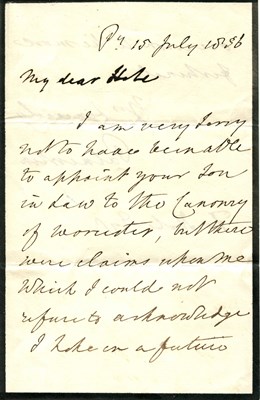 Py 15 July 1856
My dear
I am very sorry
not to have been able
to appoint your Son
in Law to the Canonry
of Worcester, but there
were claims upon me
which I could not
refuse to acknowledge
I hope in a future